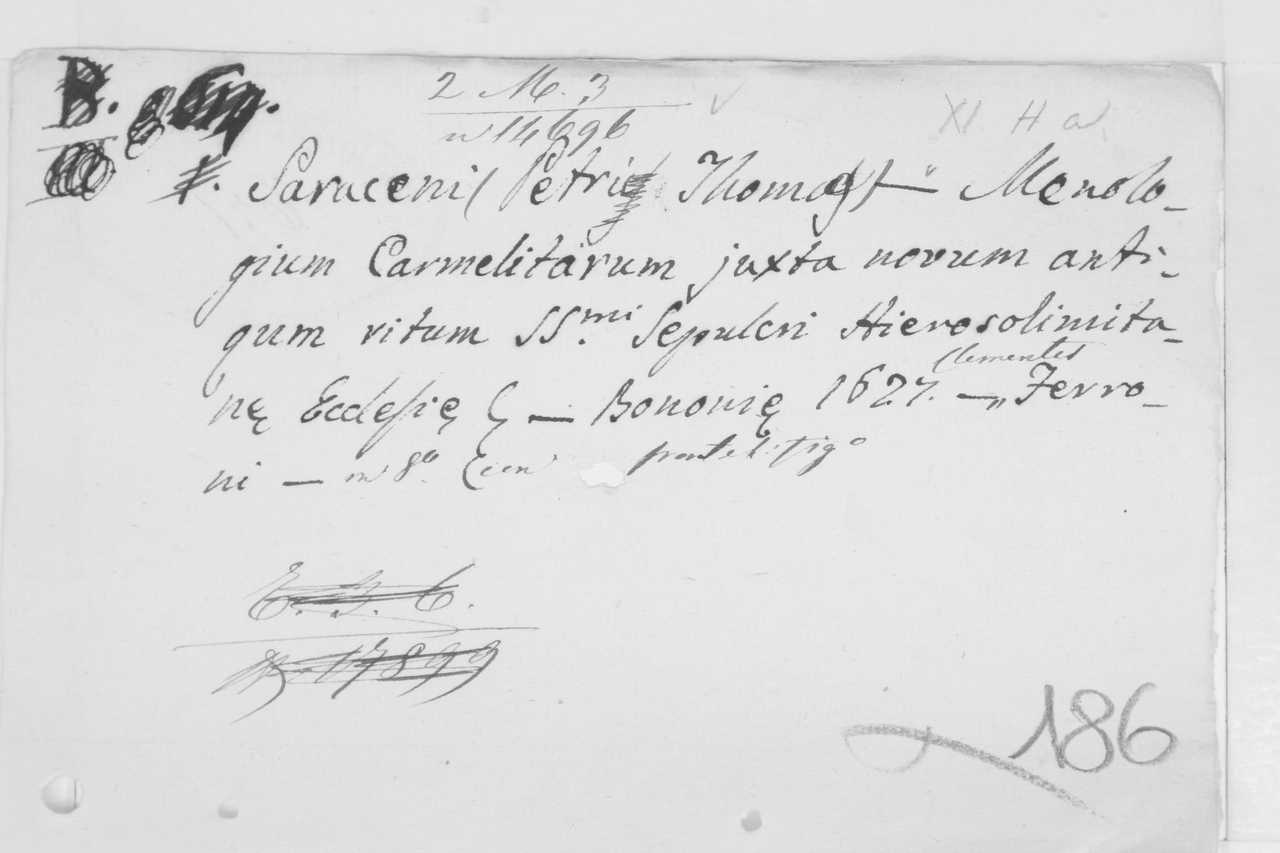 2 M. 3
n 14696
XI H a.
Saraceni (Petri Thomas) — Menolo-
gium Carmelitarum juxta novum anti-
qum ritum SS.mi Sepulcri Hierosolimita-
nę Ecclesię — Bononię 1627. — Clementes Ferro-
ni — in 8o
E. 3. 6.
N. 17899
186